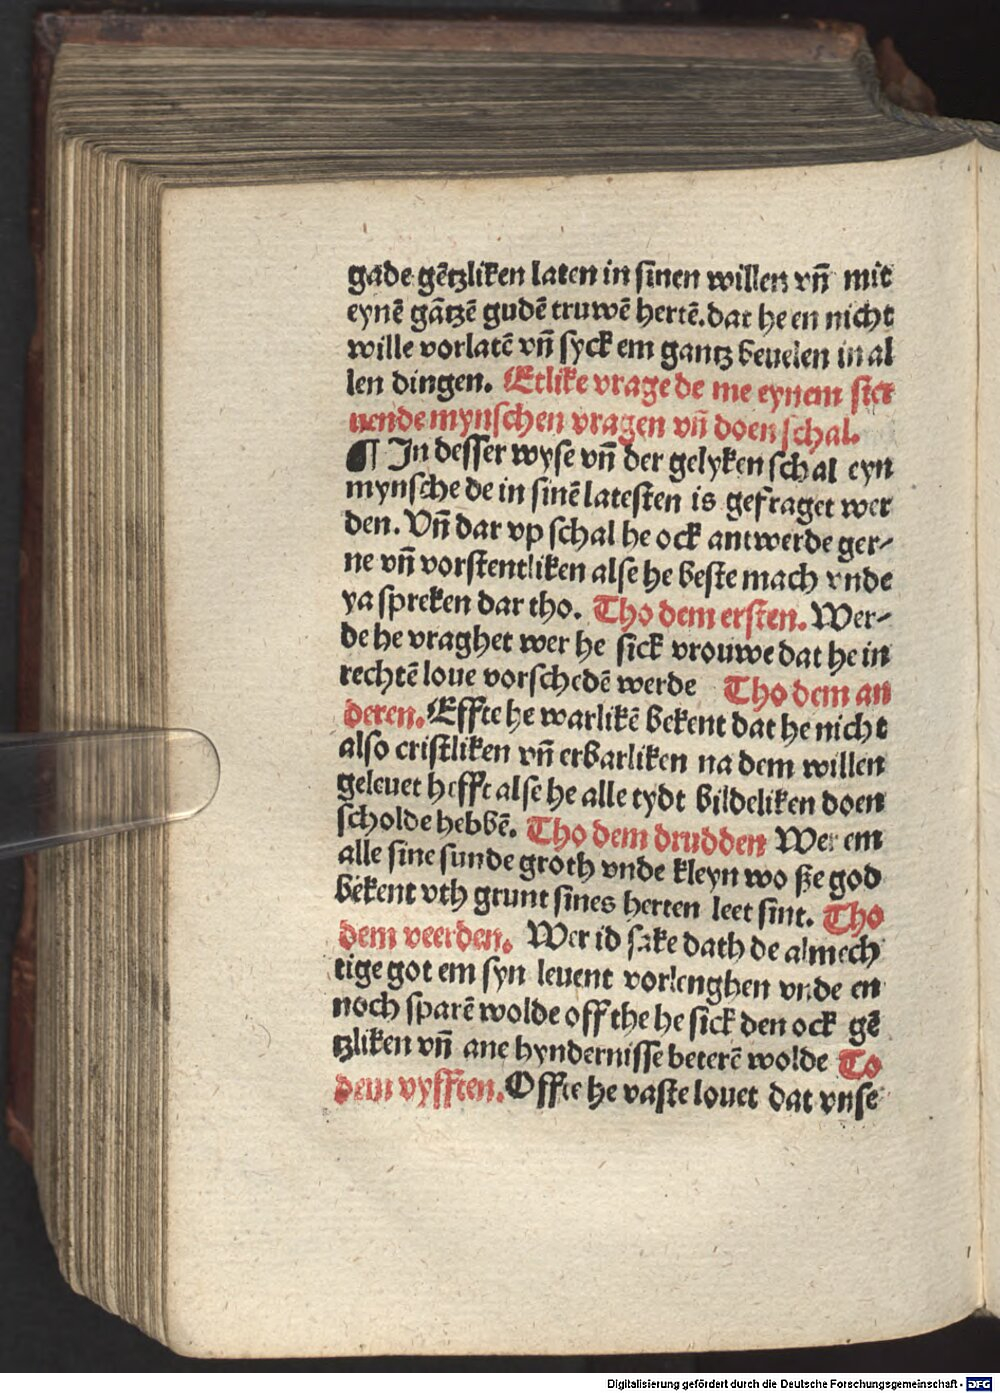 gade gētzliken laten in sinen willen vn̄ mit
eynē gātzē gudē truwē hertē. dat he en nicht
wille vorlatē vn̄ syck em gantz beuelen in al
len dingen. Etlike vrage de me eynem ster
uende mynschen vragen vn̄ doen schal.
¶ In desser wyse vn̄ der gelyken schal eyn
mynsche de in sinē latesten is gefraget wer
den. Vn̄ dar vp schal he ock antwerde ger-
ne vn̄ vorstentliken alse he beste mach vnde
ya spreken dar tho. Tho dem ersten. Wer-
de he vraghet wer he sick vrouwe dat he in
rechtē loue vorschedē werde Tho dem an
deren. Effte he warlikē bekent dat he nicht
also cristliken vn̄ erbarliken na dem willen
geleuet hefft alse he alle tydt bildeliken doen
scholde hebbē. Tho dem drudden Wer em
alle sine sunde groth vnde kleyn wo ße god
bekent vth grunt sines herten leet sint. Tho
dem veerden. Wer id sake dath de almech
tige got em syn leuent vorlenghen vnde en
noch sparē wolde off the he sick den ock gē
tzliken vn̄ ane hyndernisse beterē wolde To
dem vyfften. Offte he vaste louet dat vnse
Digitalisierung gefördert durch die Deutsche Forschungsgemeinschaft - DFG